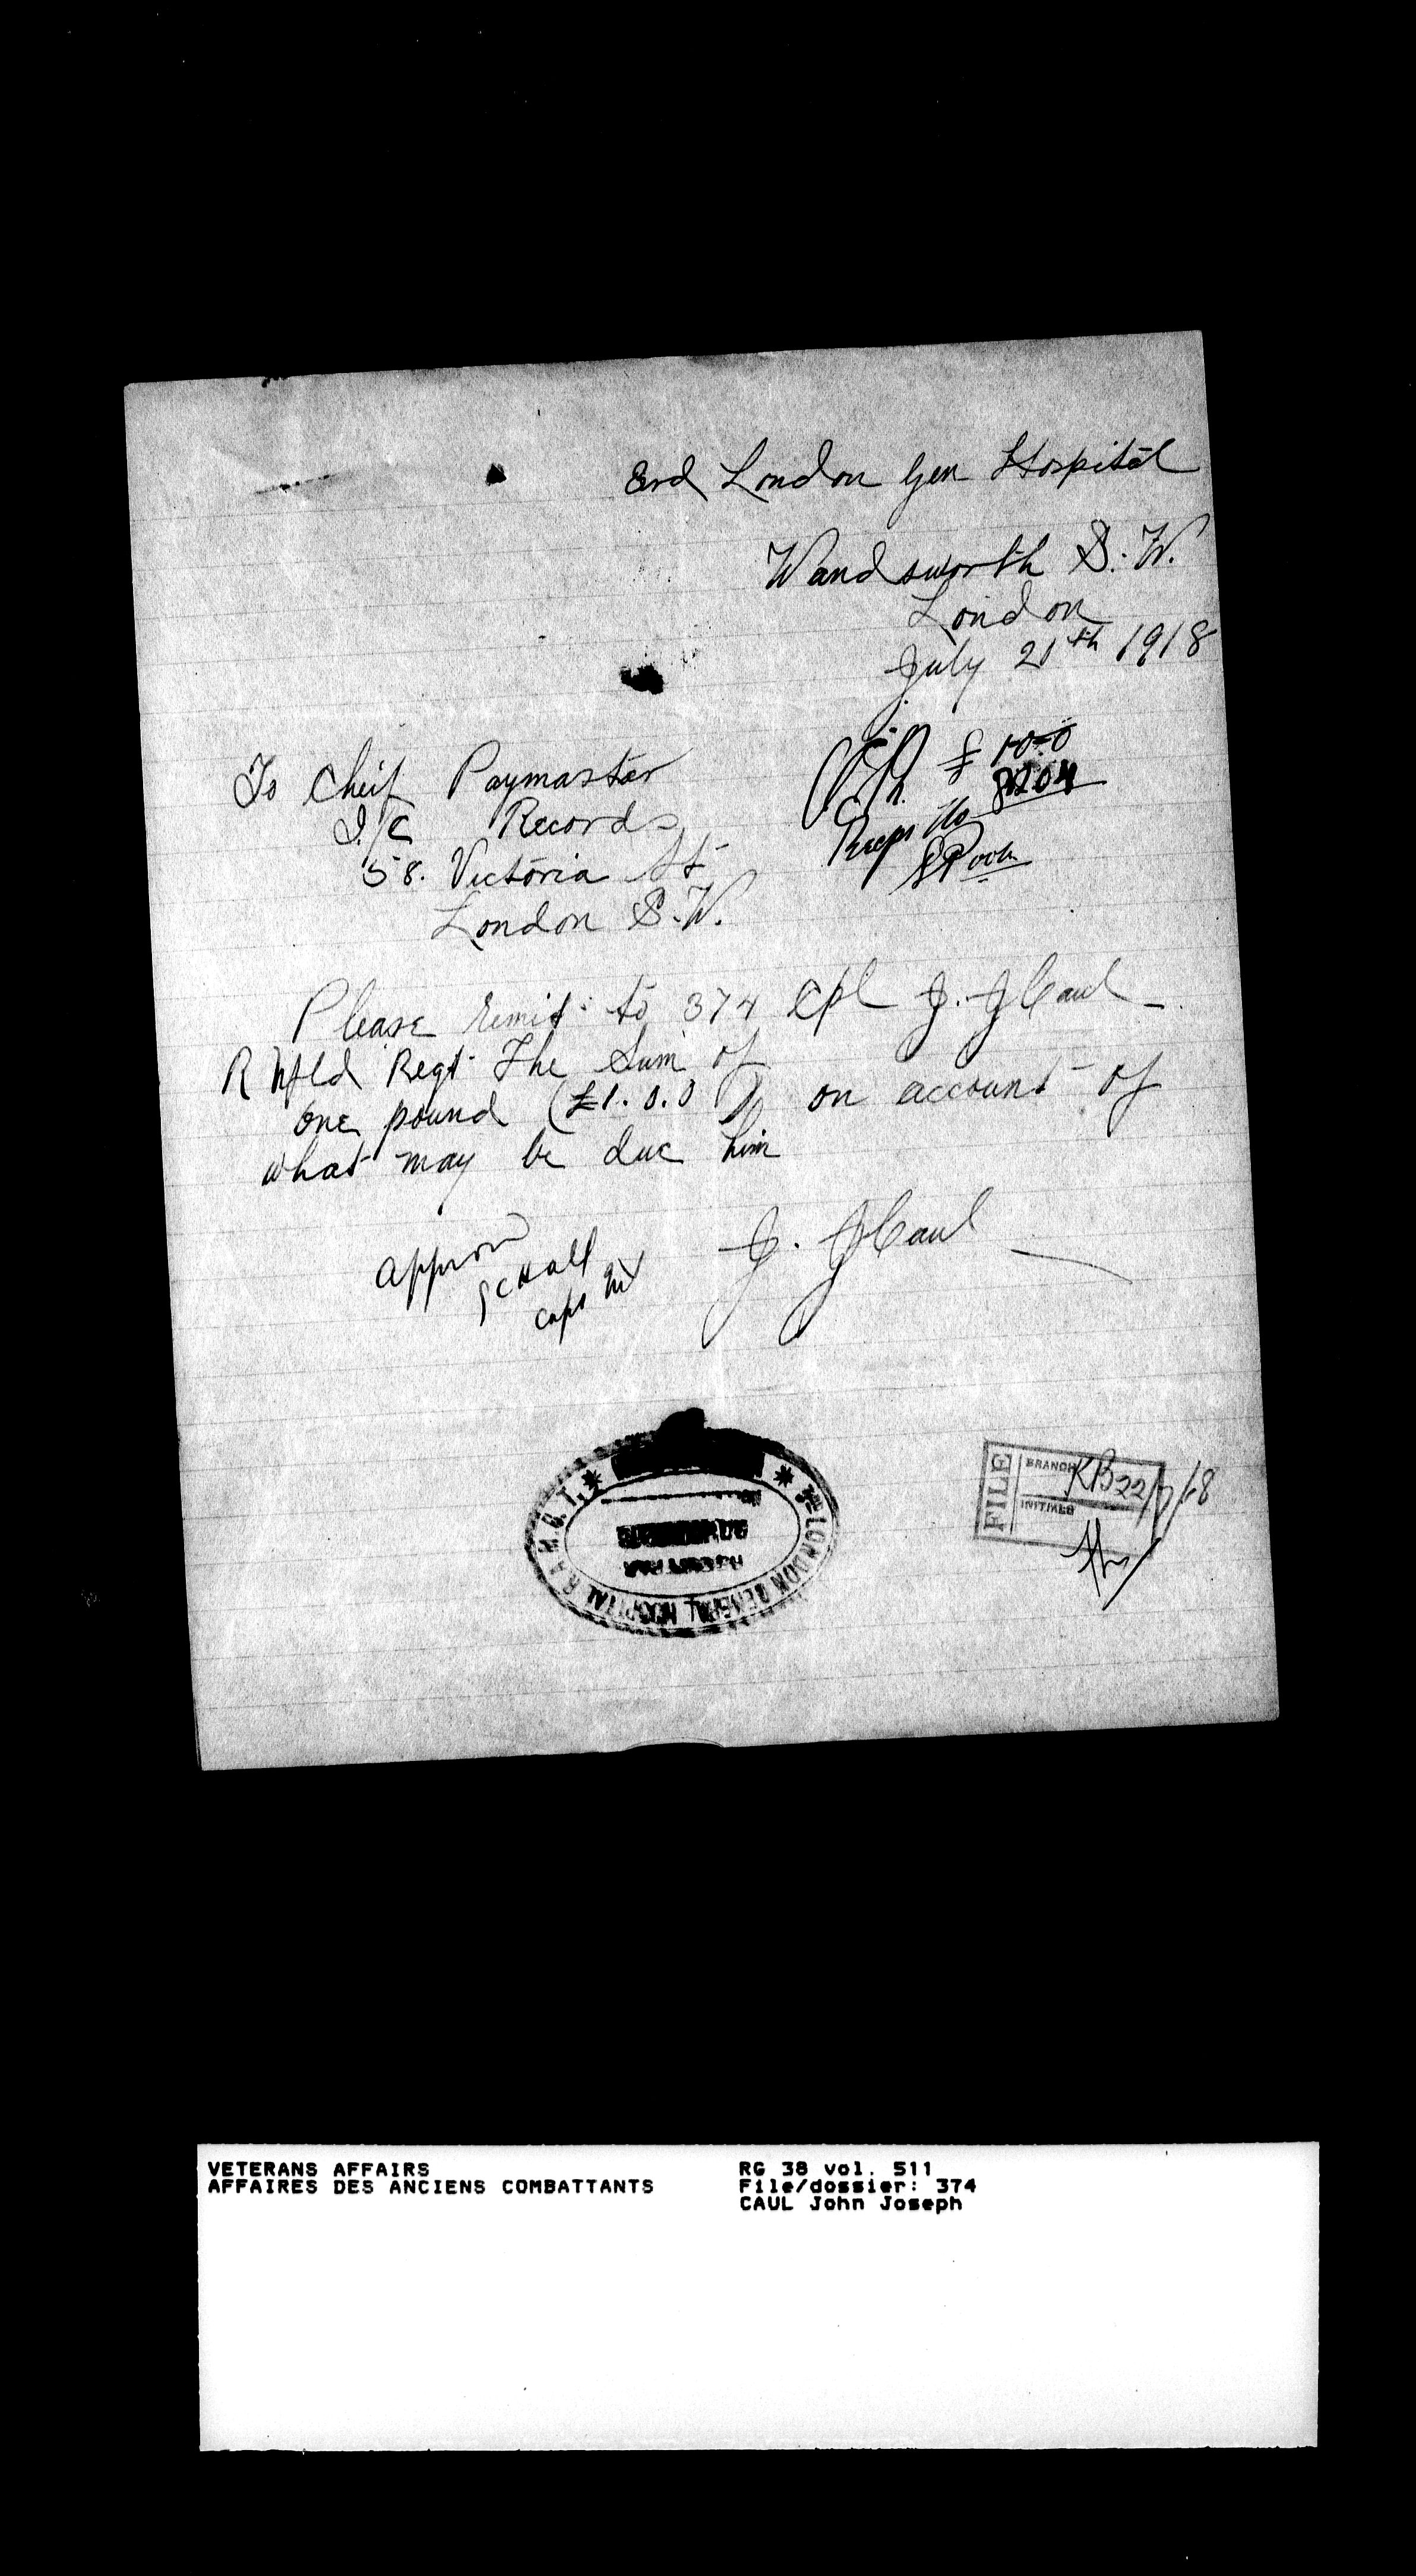 3rd London Gen Hospital
Wandsworth S.W.
London
July 20th 1918
£ 1-0-0
8204
No
To Cheif Paymaster
I/C Records
58. Victoria St
London S.W.
Please remit to 374 Cpl J. J Caul
R Nfld Regt The Sum of
one pound (£1.0.0) on account of
what may be due him
J. J Caul
Hall
Capt
3RD LONDON GENERAL HOSPITAL R.A.M.C.T.
FILE
BRANCH KB 22/7/18
INITIALS
VETERANS AFFAIRS
AFFAIRES DES ANCIENS COMBATTANTS
RG 38 vol. 511
File/dossier: 374
CAUL John Joseph